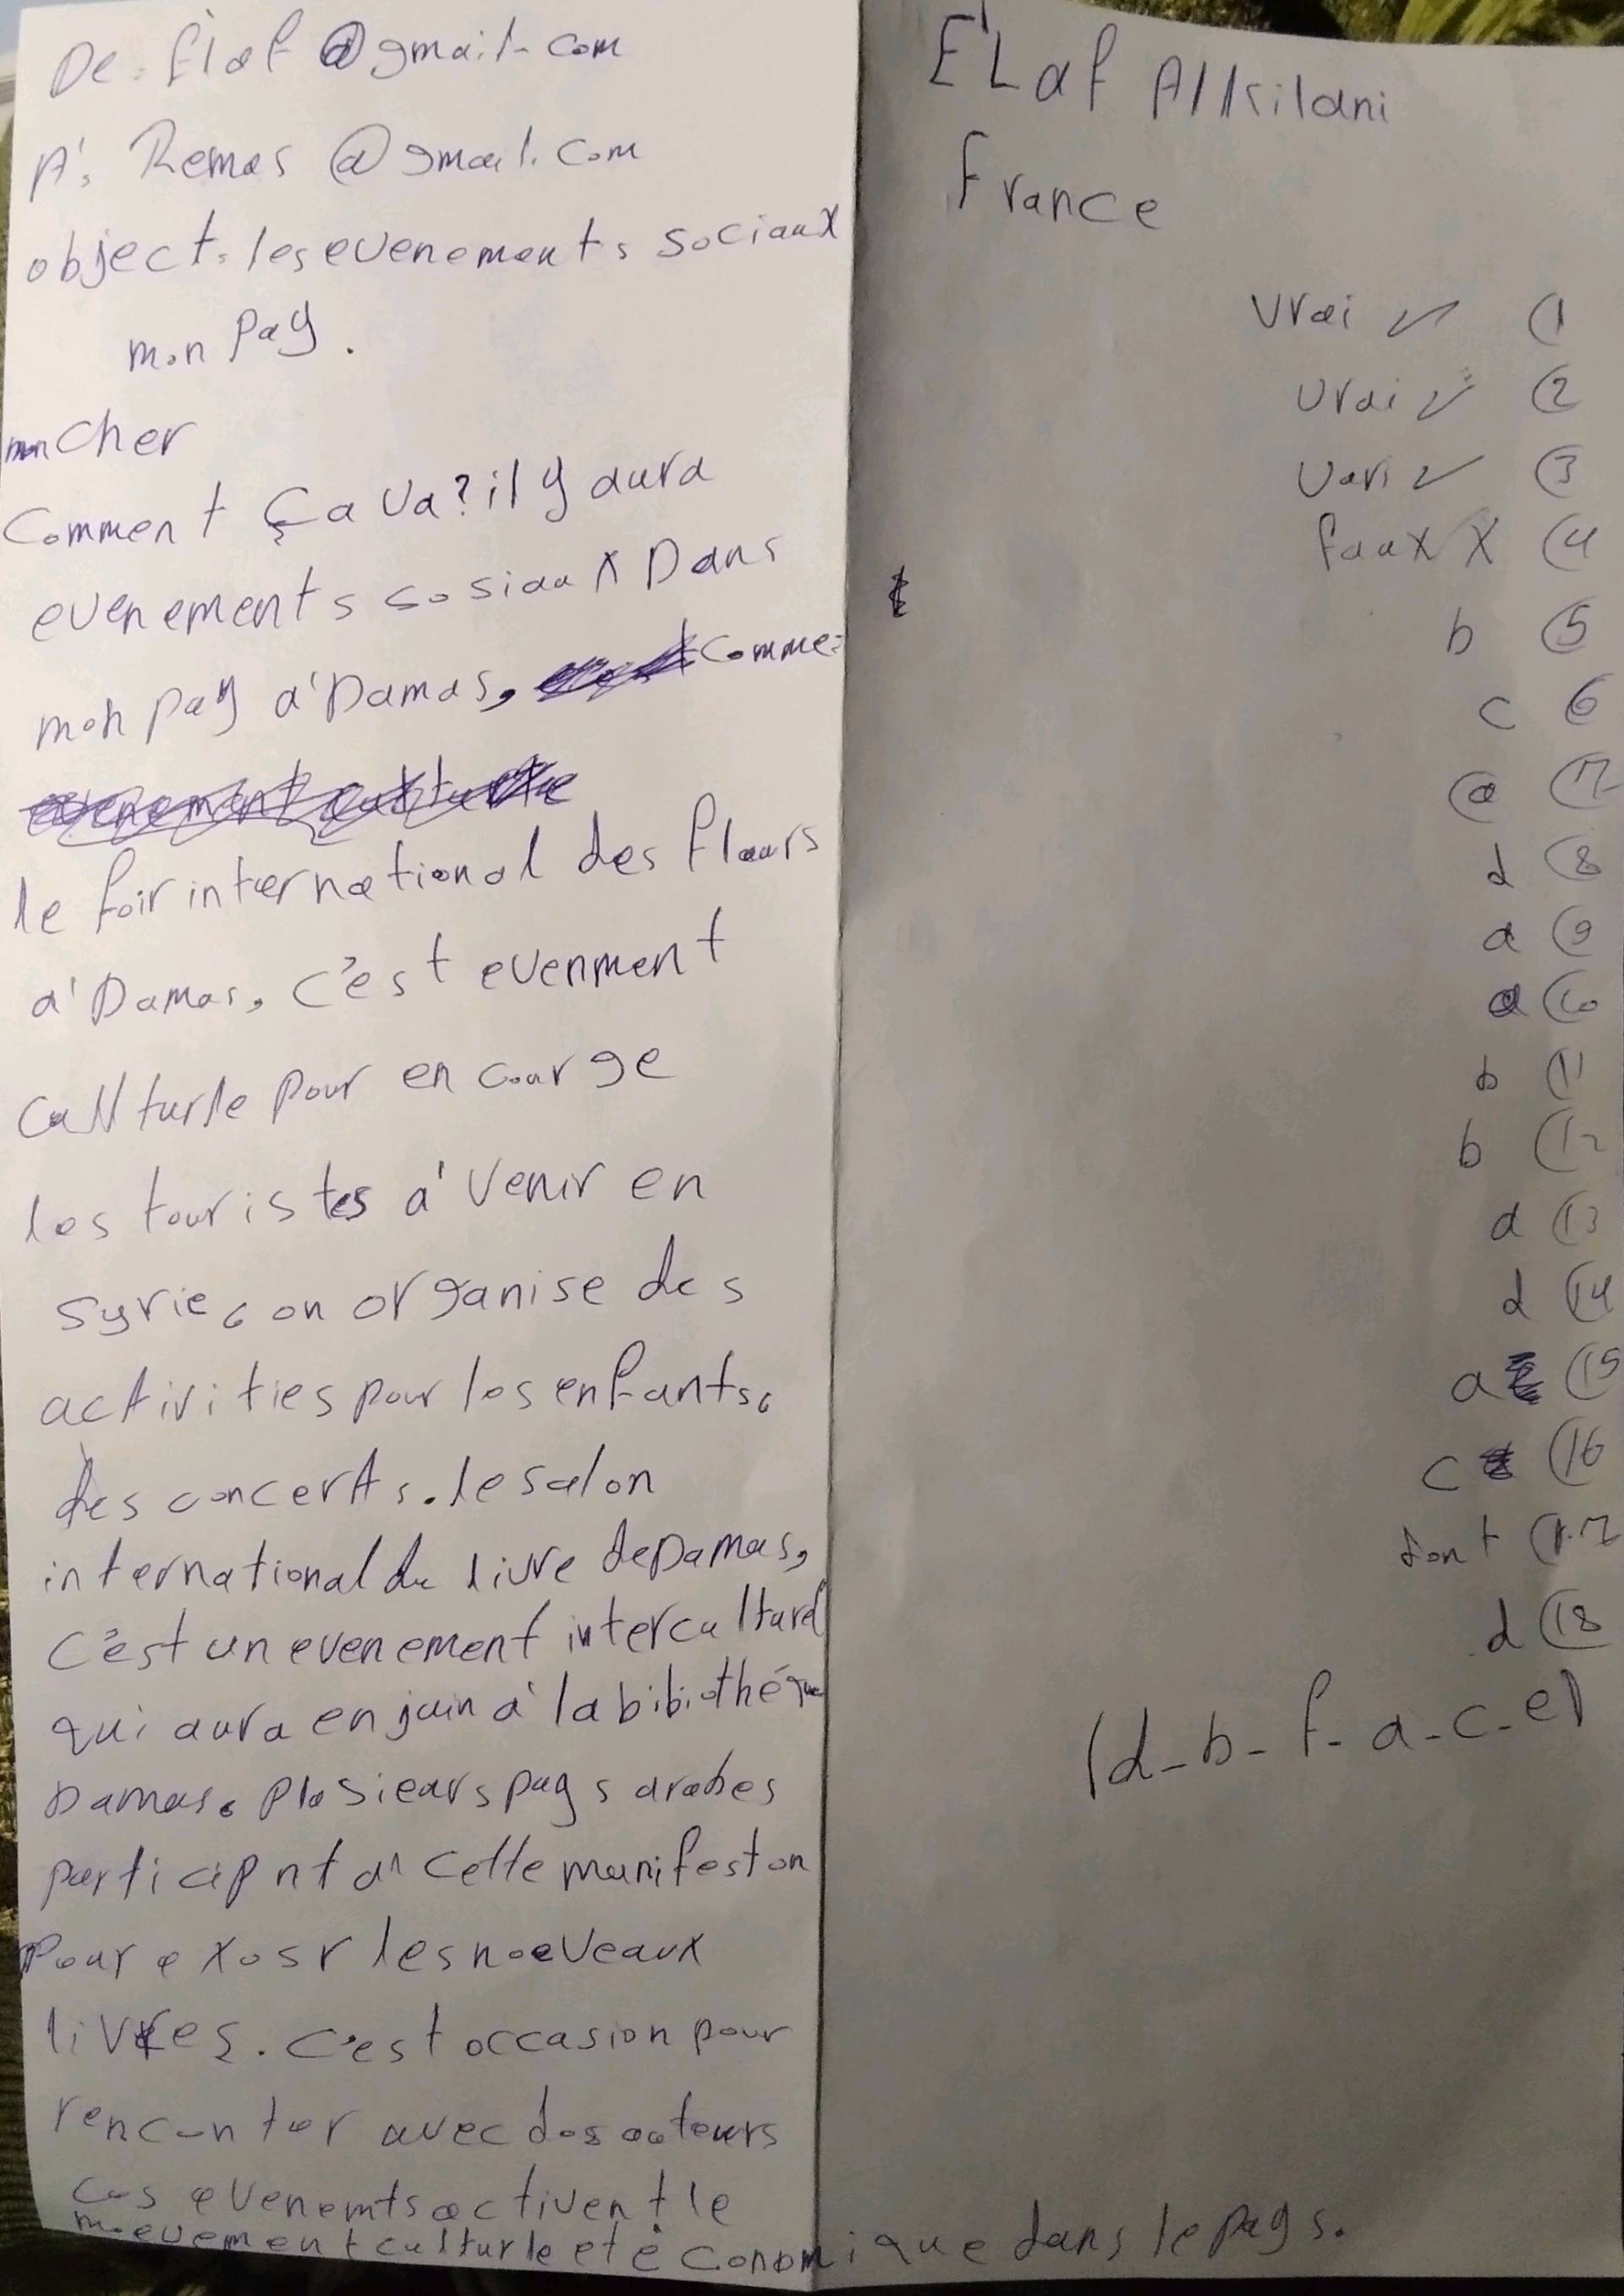 De: Elaf @gmail-com
A': Remas @gmail.com
object: les evenements sociaux
mon pay.
mon cher
Comment ça va? il y aura
evenements sosiaux Dans
mon pay a' Damas, comme:
le foir international des fleurs
a' Damas, c'est evenment
cullturle pour encourge
les touristes a' venir en
syrie, on organise des
activities pour les enfants,
des concerts. le salon
international du livre de Damas,
c'est un evenement interculturel
qui aura en juin à la bibiothéque
Damas. plosieurs pays arabes
particip nt a' cette manifeston
pour exosr les noeveaux
livres. c'est occasion pour
rencontrer avec des auteurs
ces evenemts activent le
moevement culturle et économique dans le pays.
ELaf Alkilani
France
vrai ✓ (1
vrai ✓ (2
vari ✓ (3
faux X (4
b (5
c (6
a (7
d (8
a (9
a (10
b (11
b (12
d (13
d (14
a (15
c (16
dont (17
d (18
(d-b-f-a-c-e)